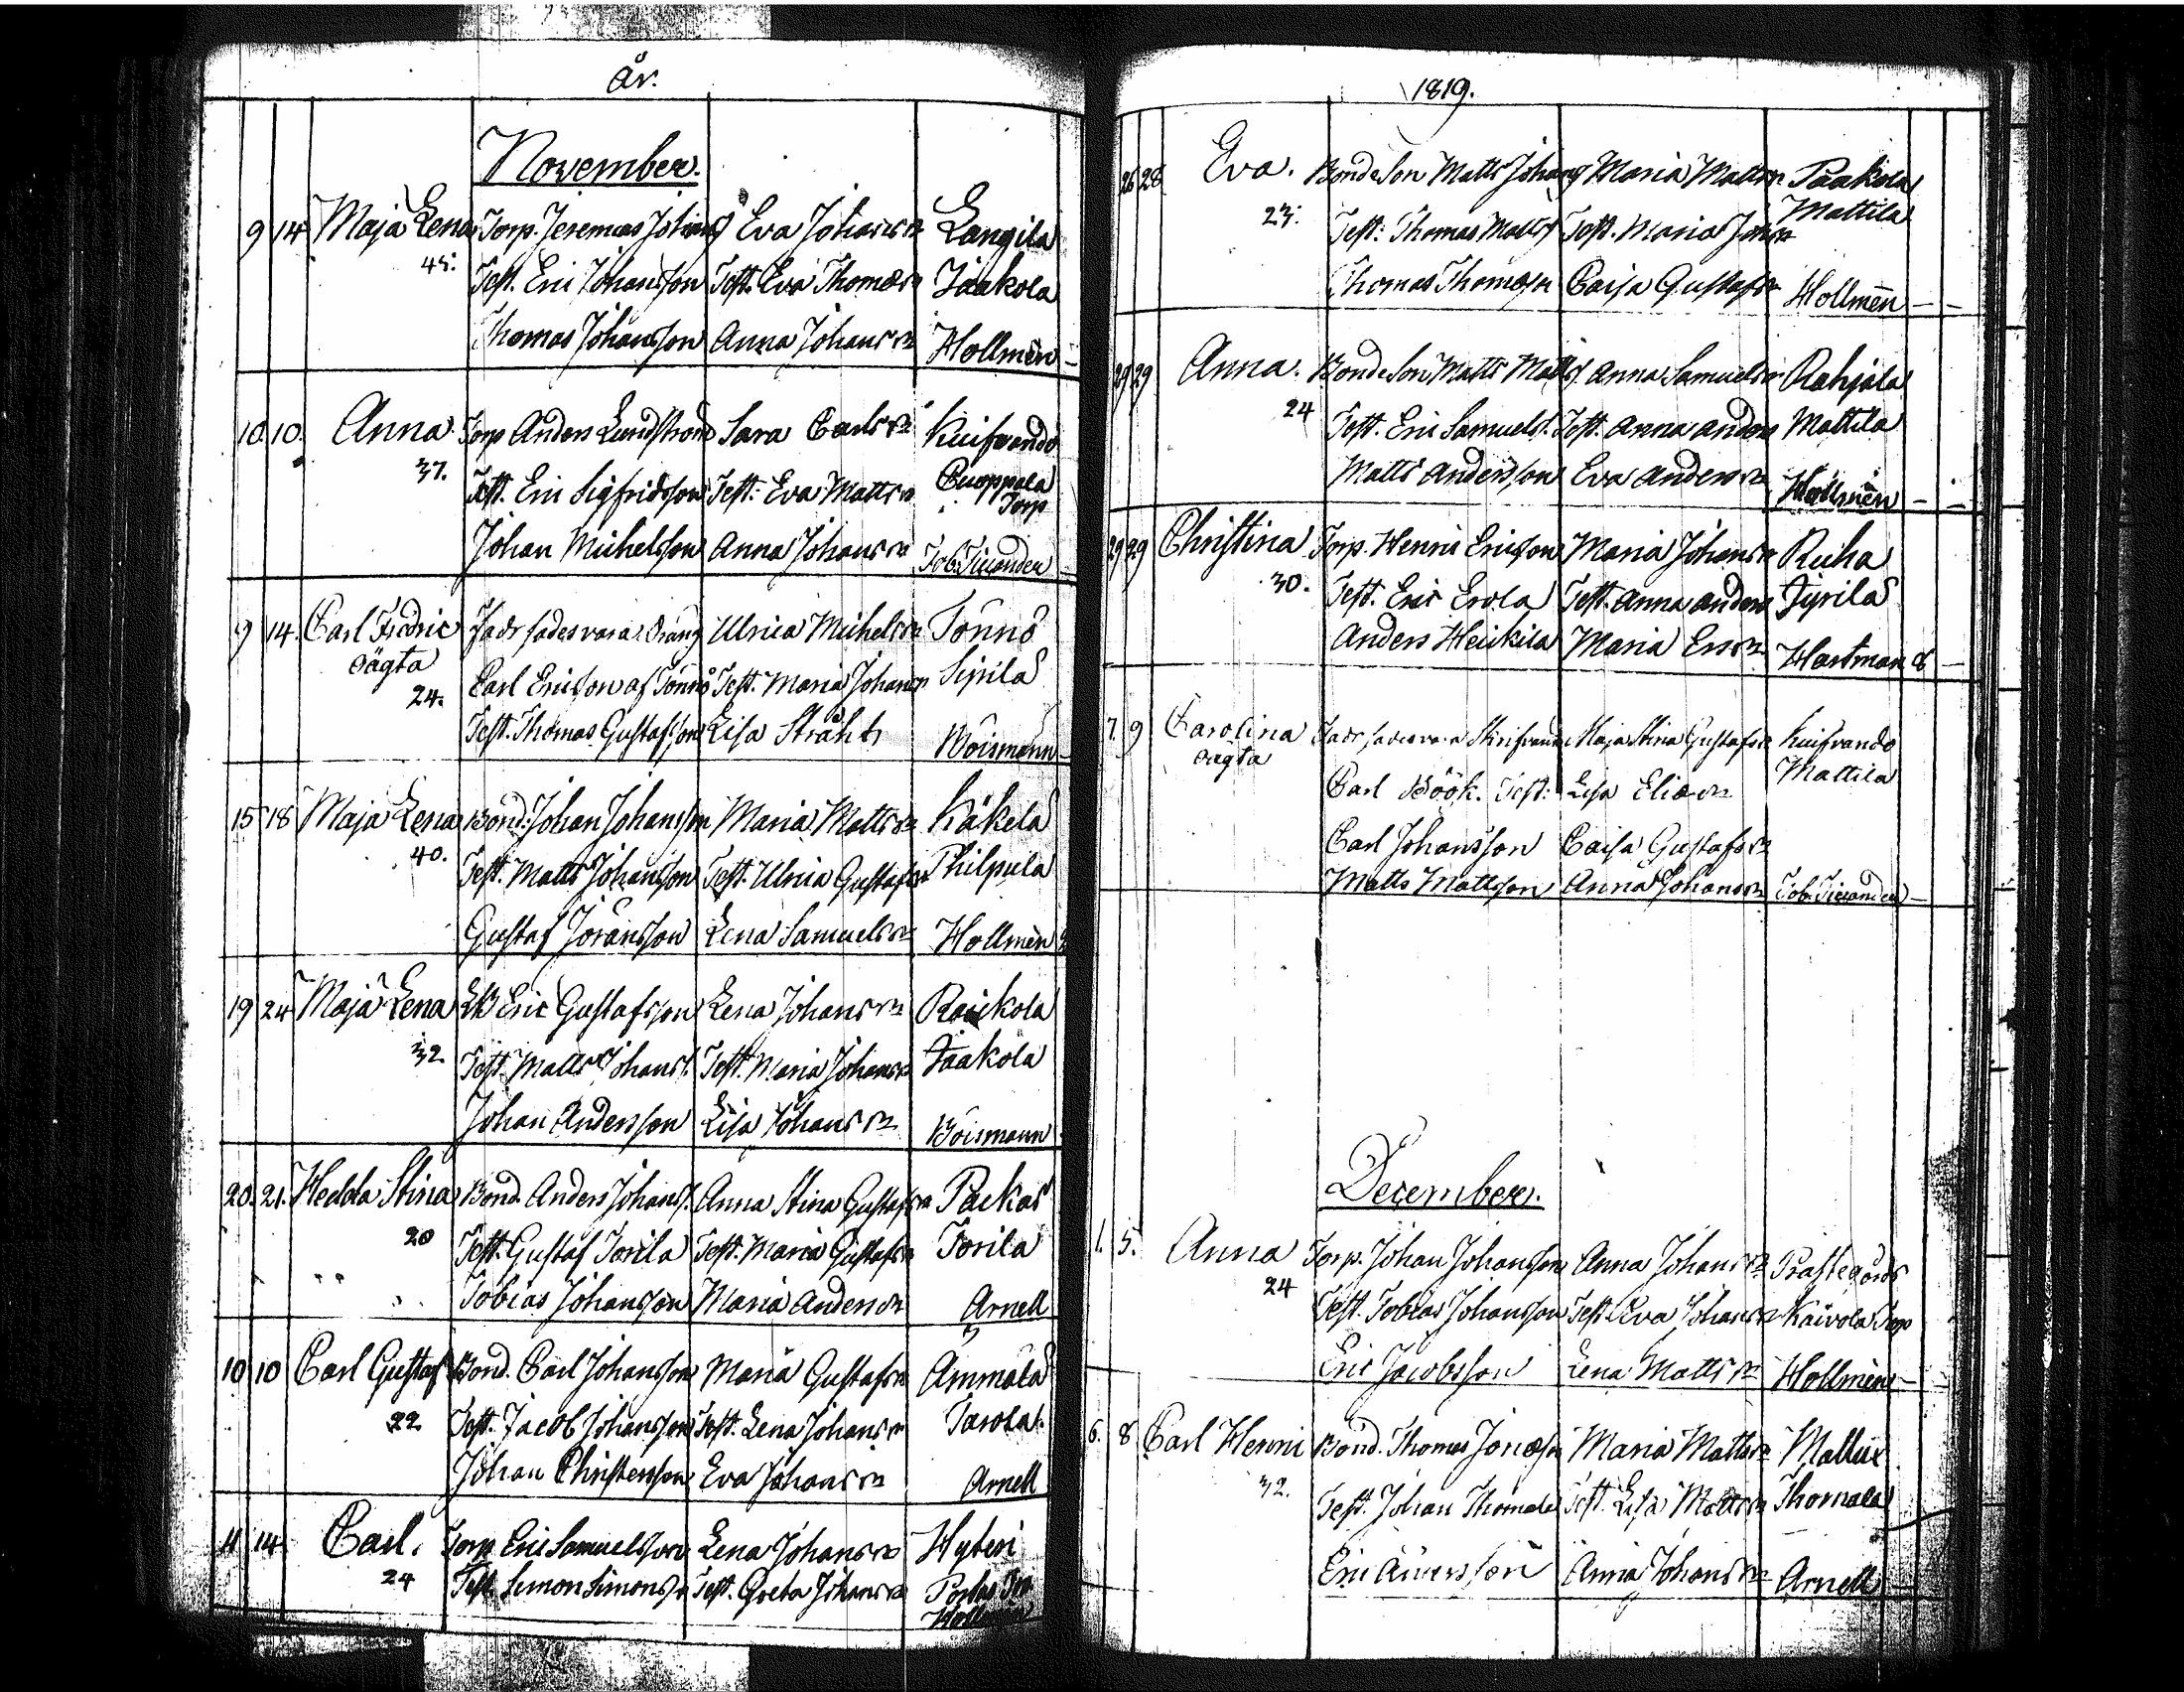 år.
November.
9 14 Maja Lena Torp. Jeremias Johanss Eva Johansdr Langila
45. Test. Eric Johansson Test. Eva Thomasdr Jaakola
Thomas Johansson Anna Johansdr Hollmén
10. 10. Anna Torp Anders Lundström Sara Carlsdr
37. Test. Eric Sigfridsson Test: Eva Mattsdr Cuoppala Torp
Johan Michelsson Anna Johansdr Tob. Ticander
9 14. Carl Fredric Ulrica Michelsdr Tönnö
oägta Carl Ericsson af Tönnö Test. Maria Johansdr Sipilä
24. Test. Thomas Gustafsson Lisa Stråhl Woismann
15 18 Maja Lena Bond. Johan Johansson Maria Mattsdr Käkelä
40. Test. Matts Johansson Test. Ulrica Gustafsdr Philpula
Gustaf Jöransson Lena Samuelsdr Hollmén
19 24 Maja Lena Eric Gustafsson Lena Johansdr Raickola
32 Test. Matts Johanss. Test. Maria Johansdr Jaakola
Johan Andersson Lisa Johansdr Woismann
20. 21. Hedda Stina Bond. Anders Johanss. Anna Stina Gustafsdr
20 Test. Gustaf Torila Test. Maria Gustafsdr Torila
Tobias Johansson Maria Andersdr Arnell
10 10 Carl Gustaf Bond. Carl Johansson Maria Gustafsdr Ammälä
22 Test. Jacob Johansson Test. Lena Johansdr
Johan Christersson Eva Johansdr Arnell
11 14 Carl. Torp Eric Samuelsson Lena Johansdr Hyteri
24 Test. Simon Simonss. Test. Greta Johansdr
Hollmén
1819.
26 28 Eva. BondeSon Matts Johanss Maria Mattsdr Paakola
23. Test: Thomas Mattss Test. Maria Mattila
Thomas Thomasson Caisa Gustafsdr Hollmén
29 29 Anna. BondeSon Matts Mattss. Anna Samuelsdr Rahjala
24 Test. Eric Samuels. Test. Anna Anders Mattila
Matts Andersson Eva Andersdr Hollmén
29 29 Christina Torp. Henric Ericsson Maria Johansdr Ruha
30. Test. Eric Erola Test. Anna Anders
Anders Heickilä Maria Ersdr Hartman
7. 9 Carolina Maja Stina Gustafsdr
oägta Carl Böök. Test: Lisa Eliædr Mattila
Carl Johansson Caisa Gustafsdr
Matts Mattsson Anna Johansdr Tob. Ticander
December.
1. 5. Anna Torp. Johan Johansson Anna Johansdr Prästegårds
24 Test. Tobias Johansson Test. Eva Johansdr Kaivola Torp
Eric Jacobsson Lena Mattsdr Hollmén
6. 8 Carl Henric Bond. Thomas Jonæson Maria Mattsdr
32. Test. Johan Thomala Test. Lisa Mattsdr Thomala
Eric Anna Johansdr Arnell